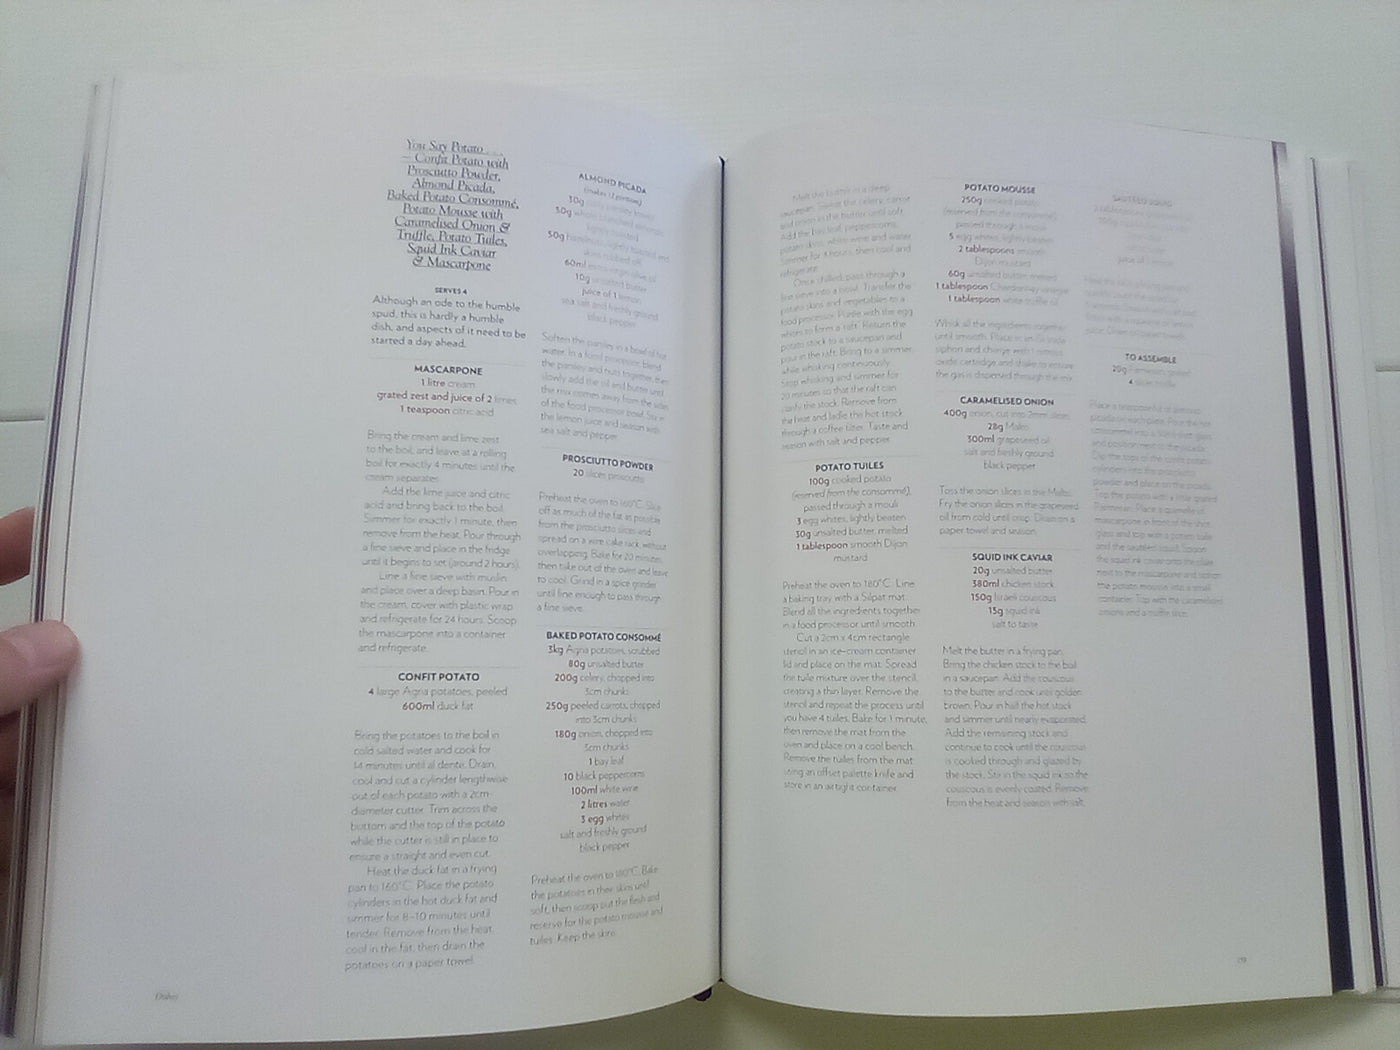 You Say Potato . . .
– Confit Potato with
Prosciutto Powder,
Almond Picada,
Baked Potato Consommé,
Potato Mousse with
Caramelised Onion &
Truffle, Potato Tuiles,
Squid Ink Caviar
& Mascarpone
SERVES 4
Although an ode to the humble
spud, this is hardly a humble
dish, and aspects of it need to be
started a day ahead.
MASCARPONE
1 litre cream
grated zest and juice of 2 limes
1 teaspoon citric acid
Bring the cream and lime zest
to the boil, and leave at a rolling
boil for exactly 4 minutes until the
cream separates.
Add the lime juice and citric
acid and bring back to the boil.
Simmer for exactly 1 minute, then
remove from the heat. Pour through
a fine sieve and place in the fridge
until it begins to set (around 2 hours).
Line a fine sieve with muslin
and place over a deep basin. Pour in
the cream, cover with plastic wrap
and refrigerate for 24 hours. Scoop
the mascarpone into a container
and refrigerate.
CONFIT POTATO
4 large Agria potatoes, peeled
600ml duck fat
Bring the potatoes to the boil in
cold salted water and cook for
14 minutes until al dente. Drain,
cool and cut a cylinder lengthwise
out of each potato with a 2cm-
diameter cutter. Trim across the
bottom and the top of the potato
while the cutter is still in place to
ensure a straight and even cut.
Heat the duck fat in a frying
pan to 160°C. Place the potato
cylinders in the hot duck fat and
simmer for 8–10 minutes until
tender. Remove from the heat,
cool in the fat, then drain the
potatoes on a paper towel.
ALMOND PICADA
(makes 12 portions)
30g curly parsley leaves
50g whole blanched almonds,
lightly toasted
50g hazelnuts, lightly toasted and
skins rubbed off
60ml extra virgin olive oil
10g unsalted butter
juice of 1 lemon
sea salt and freshly ground
black pepper
Soften the parsley in a bowl of hot
water. In a food processor, blend
the parsley and nuts together, then
slowly add the oil and butter until
the mix comes away from the sides
of the food processor bowl. Stir in
the lemon juice and season with
sea salt and pepper.
PROSCIUTTO POWDER
20 slices prosciutto
Preheat the oven to 160°C. Slice
off as much of the fat as possible
from the prosciutto slices and
spread on a wire cake rack, without
overlapping. Bake for 20 minutes,
then take out of the oven and leave
to cool. Grind in a spice grinder
until fine enough to pass through
a fine sieve.
BAKED POTATO CONSOMMÉ
3kg Agria potatoes, scrubbed
80g unsalted butter
200g celery, chopped into
3cm chunks
250g peeled carrots, chopped
into 3cm chunks
180g onion, chopped into
3cm chunks
1 bay leaf
10 black peppercorns
100ml white wine
2 litres water
3 egg whites
salt and freshly ground
black pepper
Preheat the oven to 180°C. Bake
the potatoes in their skins until
soft, then scoop out the flesh and
reserve for the potato mousse and
tuiles. Keep the skins.
Dishes
Melt the butter in a deep
saucepan. Sweat the celery, carrot
and onion in the butter until soft.
Add the bay leaf, peppercorns,
potato skins, white wine and water.
Simmer for 4 hours, then cool and
refrigerate.
Once chilled, pass through a
fine sieve into a bowl. Transfer the
potato skins and vegetables to a
food processor. Purée with the egg
whites to form a 'raft'. Return the
potato stock to a saucepan and
pour in the raft. Bring to a simmer,
while whisking continuously.
Stop whisking and simmer for
20 minutes so that the raft can
clarify the stock. Remove from
the heat and ladle the hot stock
through a coffee filter. Taste and
season with salt and pepper.
POTATO TUILES
100g cooked potato
(reserved from the consommé),
passed through a mouli
3 egg whites, lightly beaten
30g unsalted butter, melted
1 tablespoon smooth Dijon
mustard
Preheat the oven to 180°C. Line
a baking tray with a Silpat mat.
Blend all the ingredients together
in a food processor until smooth.
Cut a 2cm x 4cm rectangle
stencil in an ice-cream container
lid and place on the mat. Spread
the tuile mixture over the stencil,
creating a thin layer. Remove the
stencil and repeat the process until
you have 4 tuiles. Bake for 1 minute,
then remove the mat from the
oven and place on a cool bench.
Remove the tuiles from the mat
using an offset palette knife and
store in an airtight container.
POTATO MOUSSE
250g cooked potato
(reserved from the consommé),
passed through a mouli
5 egg whites, lightly beaten
2 tablespoons smooth
Dijon mustard
60g unsalted butter, melted
1 tablespoon Chardonnay vinegar
1 tablespoon white truffle oil
Whisk all the ingredients together
until smooth. Place in an iSi soda
siphon and charge with 1 nitrous
oxide cartridge and shake to ensure
the gas is dispersed through the mix.
CARAMELISED ONION
400g onion, cut into 2mm slices
28g Malto
300ml grapeseed oil
salt and freshly ground
black pepper
Toss the onion slices in the Malto.
Fry the onion slices in the grapeseed
oil from cold until crisp. Drain on a
paper towel and season.
SQUID INK CAVIAR
20g unsalted butter
380ml chicken stock
150g Israeli couscous
15g squid ink
salt to taste
Melt the butter in a frying pan.
Bring the chicken stock to the boil
in a saucepan. Add the couscous
to the butter and cook until golden
brown. Pour in half the hot stock
and simmer until nearly evaporated.
Add the remaining stock and
continue to cook until the couscous
is cooked through and glazed by
the stock. Stir in the squid ink so the
couscous is evenly coated. Remove
from the heat and season with salt.
SAUTÉED SQUID
juice of 1 lemon
TO ASSEMBLE
20g Parmesan, grated
4 slices truffle
Place a teaspoonful of almond
picada on each plate. Pour the hot
consommé into a shot glass
and position next to the picada.
Dip the tops of the confit potato
cylinders into the prosciutto
powder and place on the picada.
Top the potato with a little grated
Parmesan. Place a quenelle of
mascarpone in front of the shot
glass and top with a potato tuile
and the sautéed squid. Spoon
the squid ink caviar onto the plate
next to the mascarpone and siphon
the potato mousse into a small
container. Top with the caramelised
onions and a truffle slice.